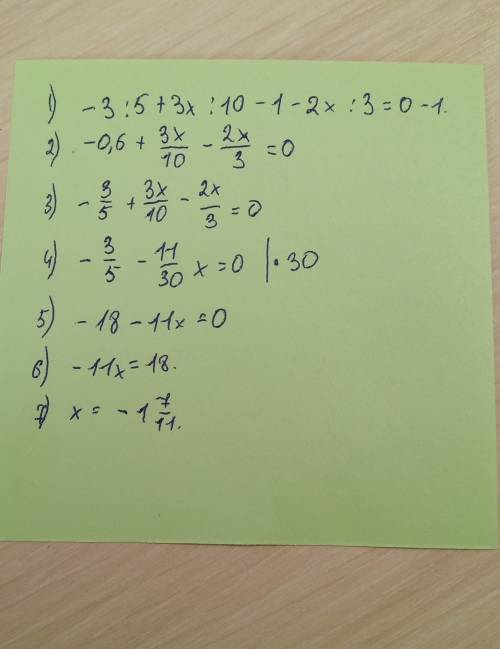 1) -3:5+3x:10-1-2x:3=0-1.
2) -0,6+3x/10-2x/3=0
3) -3/5+3x/10-2x/3=0
4) -3/5-11/30x=0 |•30
5) -18-11x=0
6) -11x=18.
7) x=-1 7/11.